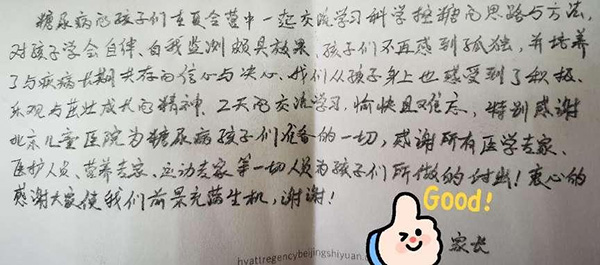 糖尿病的孩子们在夏令营中一起交流学习科学控糖的思路与方法,
对孩子学会自律、自我监测颇具效果、孩子们不再感到孤独,并培养
了与疾病长期共存的信心与决心。我们从孩子身上也感受到了积极、
乐观与茁壮成长的精神。2天的交流学习,愉快且难忘。特别感谢
北京儿童医院为糖尿病孩子们准备的一切,感谢所有医学专家、
医护人员、营养专家、运动专家等一切人员为孩子们所做的付出!衷心的
感谢大家使我们前景充满生机,谢谢!
Good!
家长
hyattregencybeijingshiyuan.